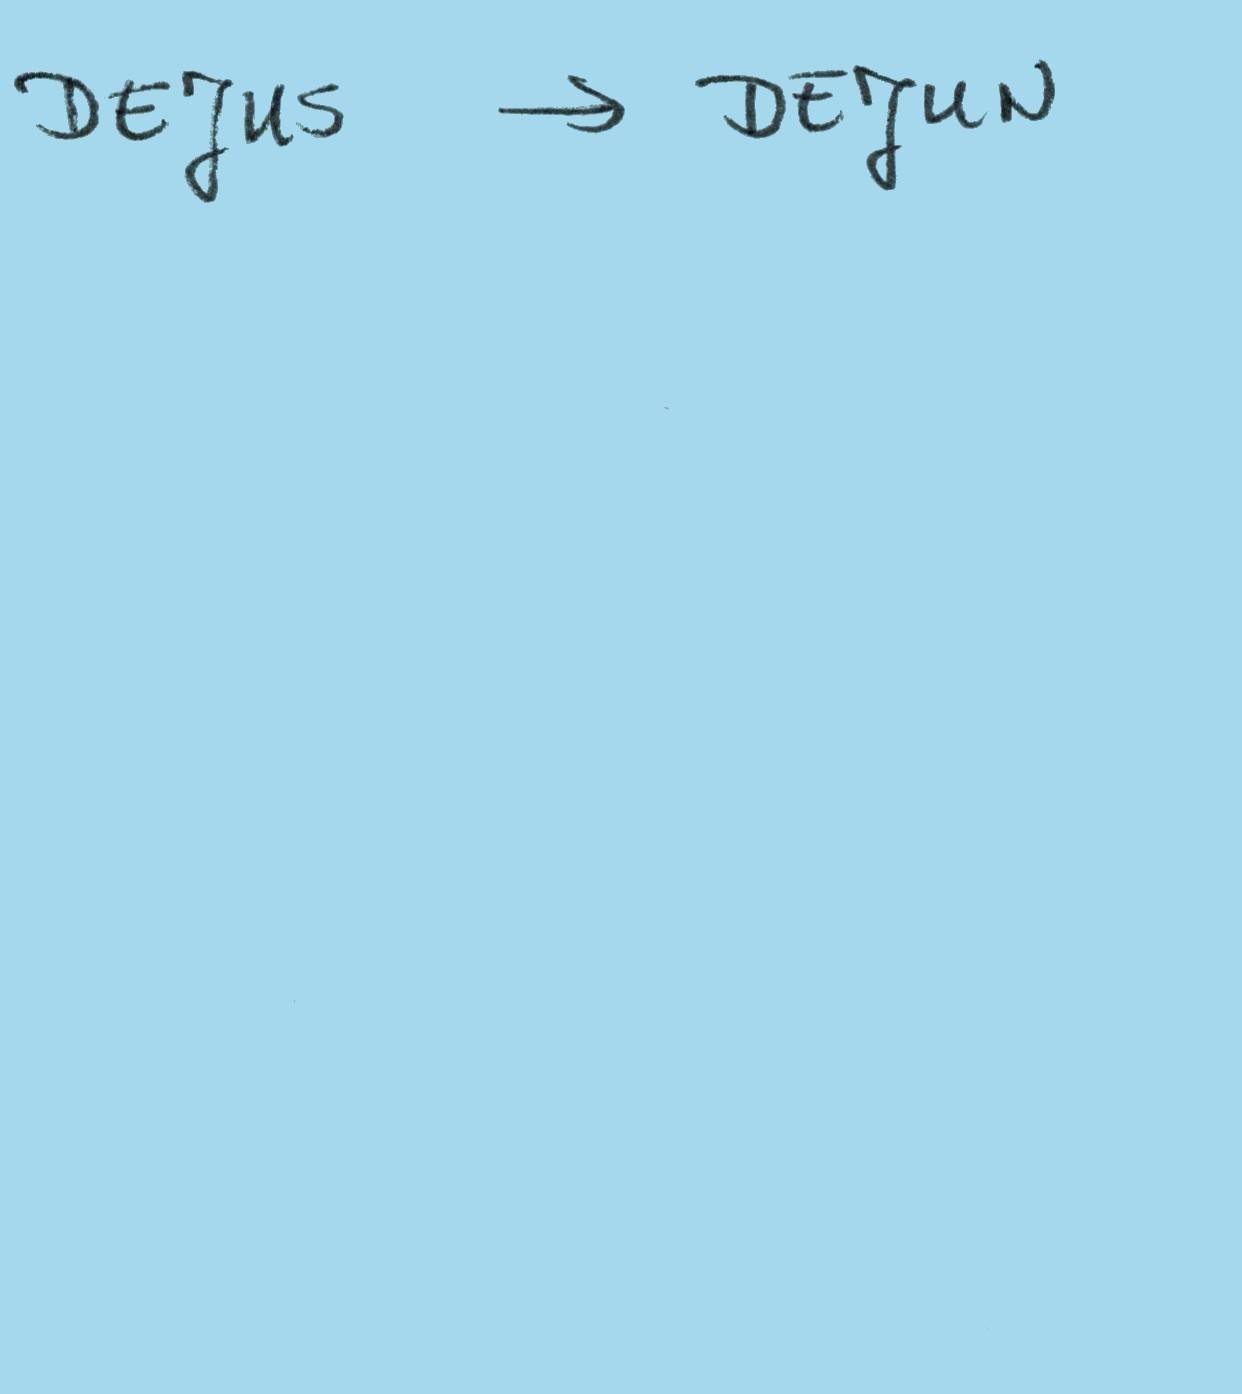 DEJUS → DEJUN